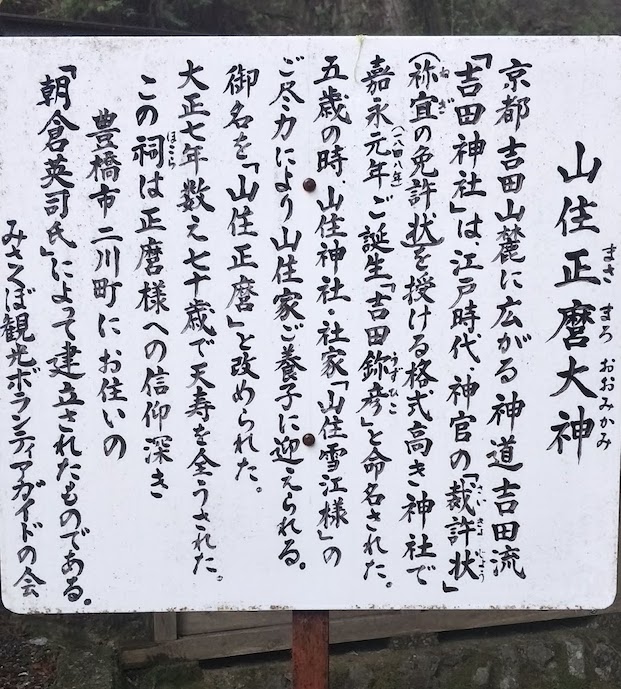 山住正麿大神
まさ まろ おおみかみ
京都吉田山麓に広がる神道吉田流
「吉田神社」は、江戸時代、神官の「裁許状」
さいきょじょう
(祢宜の免許状)を授ける格式高き神社で
ねぎ
嘉永元年ご誕生「吉田鉨彦」と命名された。
(一八四八年)
うずひこ
五歳の時、山住神社・社家「山住雪江様」の
ご尽力により山住家ご養子に迎えられる。
御名を「山住正麿」と改められた。
大正七年数え七十歳で天寿を全うされた。
この祠は正麿様への信仰深き
ほこら
豊橋市二川町にお住いの
「朝倉英司氏」によって建立されたものである。
みさくぼ観光ボランティアガイドの会